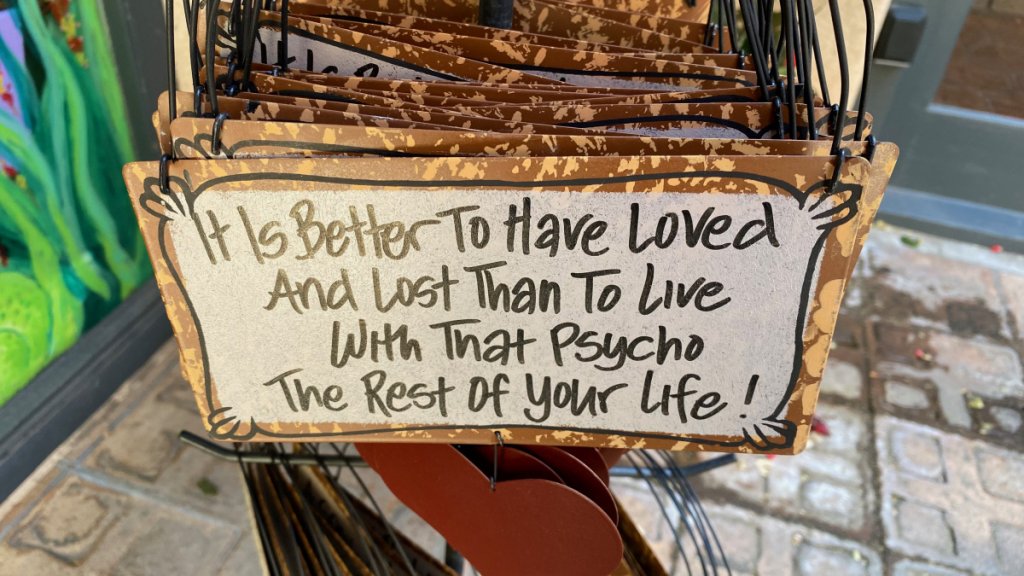 It Is Better To Have Loved
And Lost Than To Live
With That Psycho
The Rest Of Your Life !